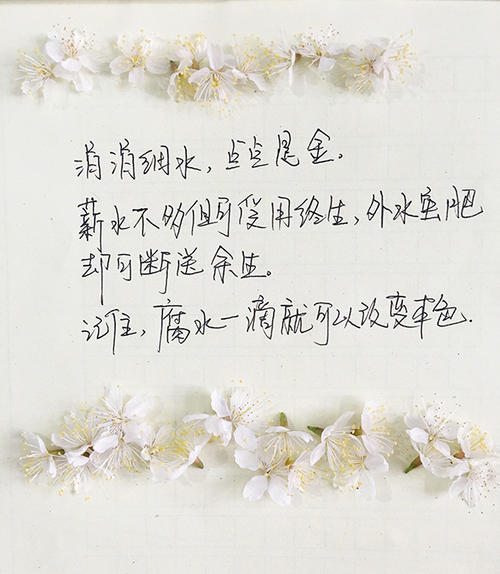 涓涓细水，点点是金。
薪水不多但可受用终生，外水虽肥
却可断送余生。
记住，腐水一滴就可以改变本色.